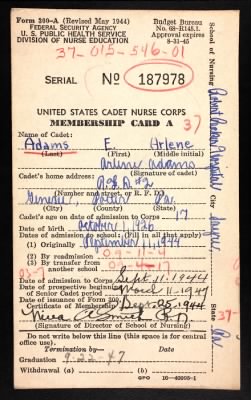 Form 300-A (Revised May 1944)
FEDERAL SECURITY AGENCY
U. S. PUBLIC HEALTH SERVICE
DIVISION OF NURSE EDUCATION
Budget Bureau
No. 68-R145.1
Approval expires
8-31-45
37-015-546-01
SERIAL No 187978
UNITED STATES CADET NURSE CORPS
MEMBERSHIP CARD A 37
Name of Cadet:
Adams E. Arlene
(Last) (First) (Middle initial)
Arlene Adams
Cadet's home address:
R.F.D #2
(Number and street, or R. F. D.)
Pa.
(City) (County) (State)
Cadet's age on admission to Corps 17
Date of birth October 1, 1926
Dates of admission to school: (Fill in all that apply)
(1) Originally September 11, 1944
(2) By readmission 09-11-4
(3) By transfer from
another school 04-17
Date of admission to Corps Sept. 11-1944
Date of prospective beginning
of Senior Cadet period 11-1947
Date of issuance of Form 300,
Certificate of Membership Sept. 25, 1944
(Signature of Director of School of Nursing)
Do not write below this line (this space is for central
office use).
Termination Date
Graduation 9-22-47
Withdrawal (a) (b)
GPO 16-40095-1
School of Nursing
Hospital
City
State
37-
Pa